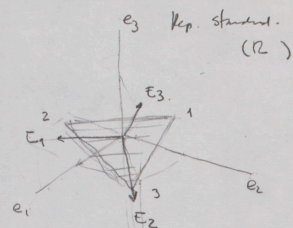 e₃ Rep. standard.
(R)
E₃
2
1
E₁
e₂
3
e₁
E₂